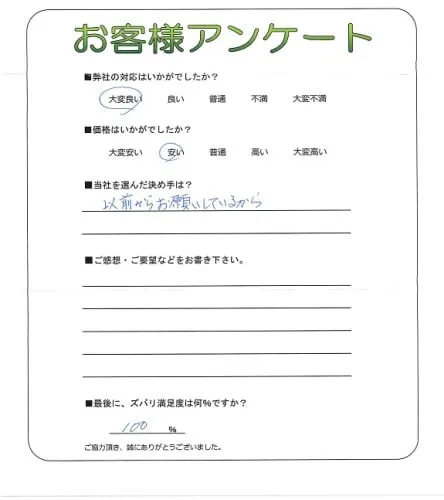 お客様アンケート
■弊社の対応はいかがでしたか?
大変良い 良い 普通 不満 大変不満
■価格はいかがでしたか?
大変安い 安い 普通 高い 大変高い
■当社を選んだ決め手は?
以前からお願いしているから
■ご感想・ご要望などをお書き下さい。
■最後に、ズバリ満足度は何%ですか?
100 %
ご協力頂き、誠にありがとうございました。